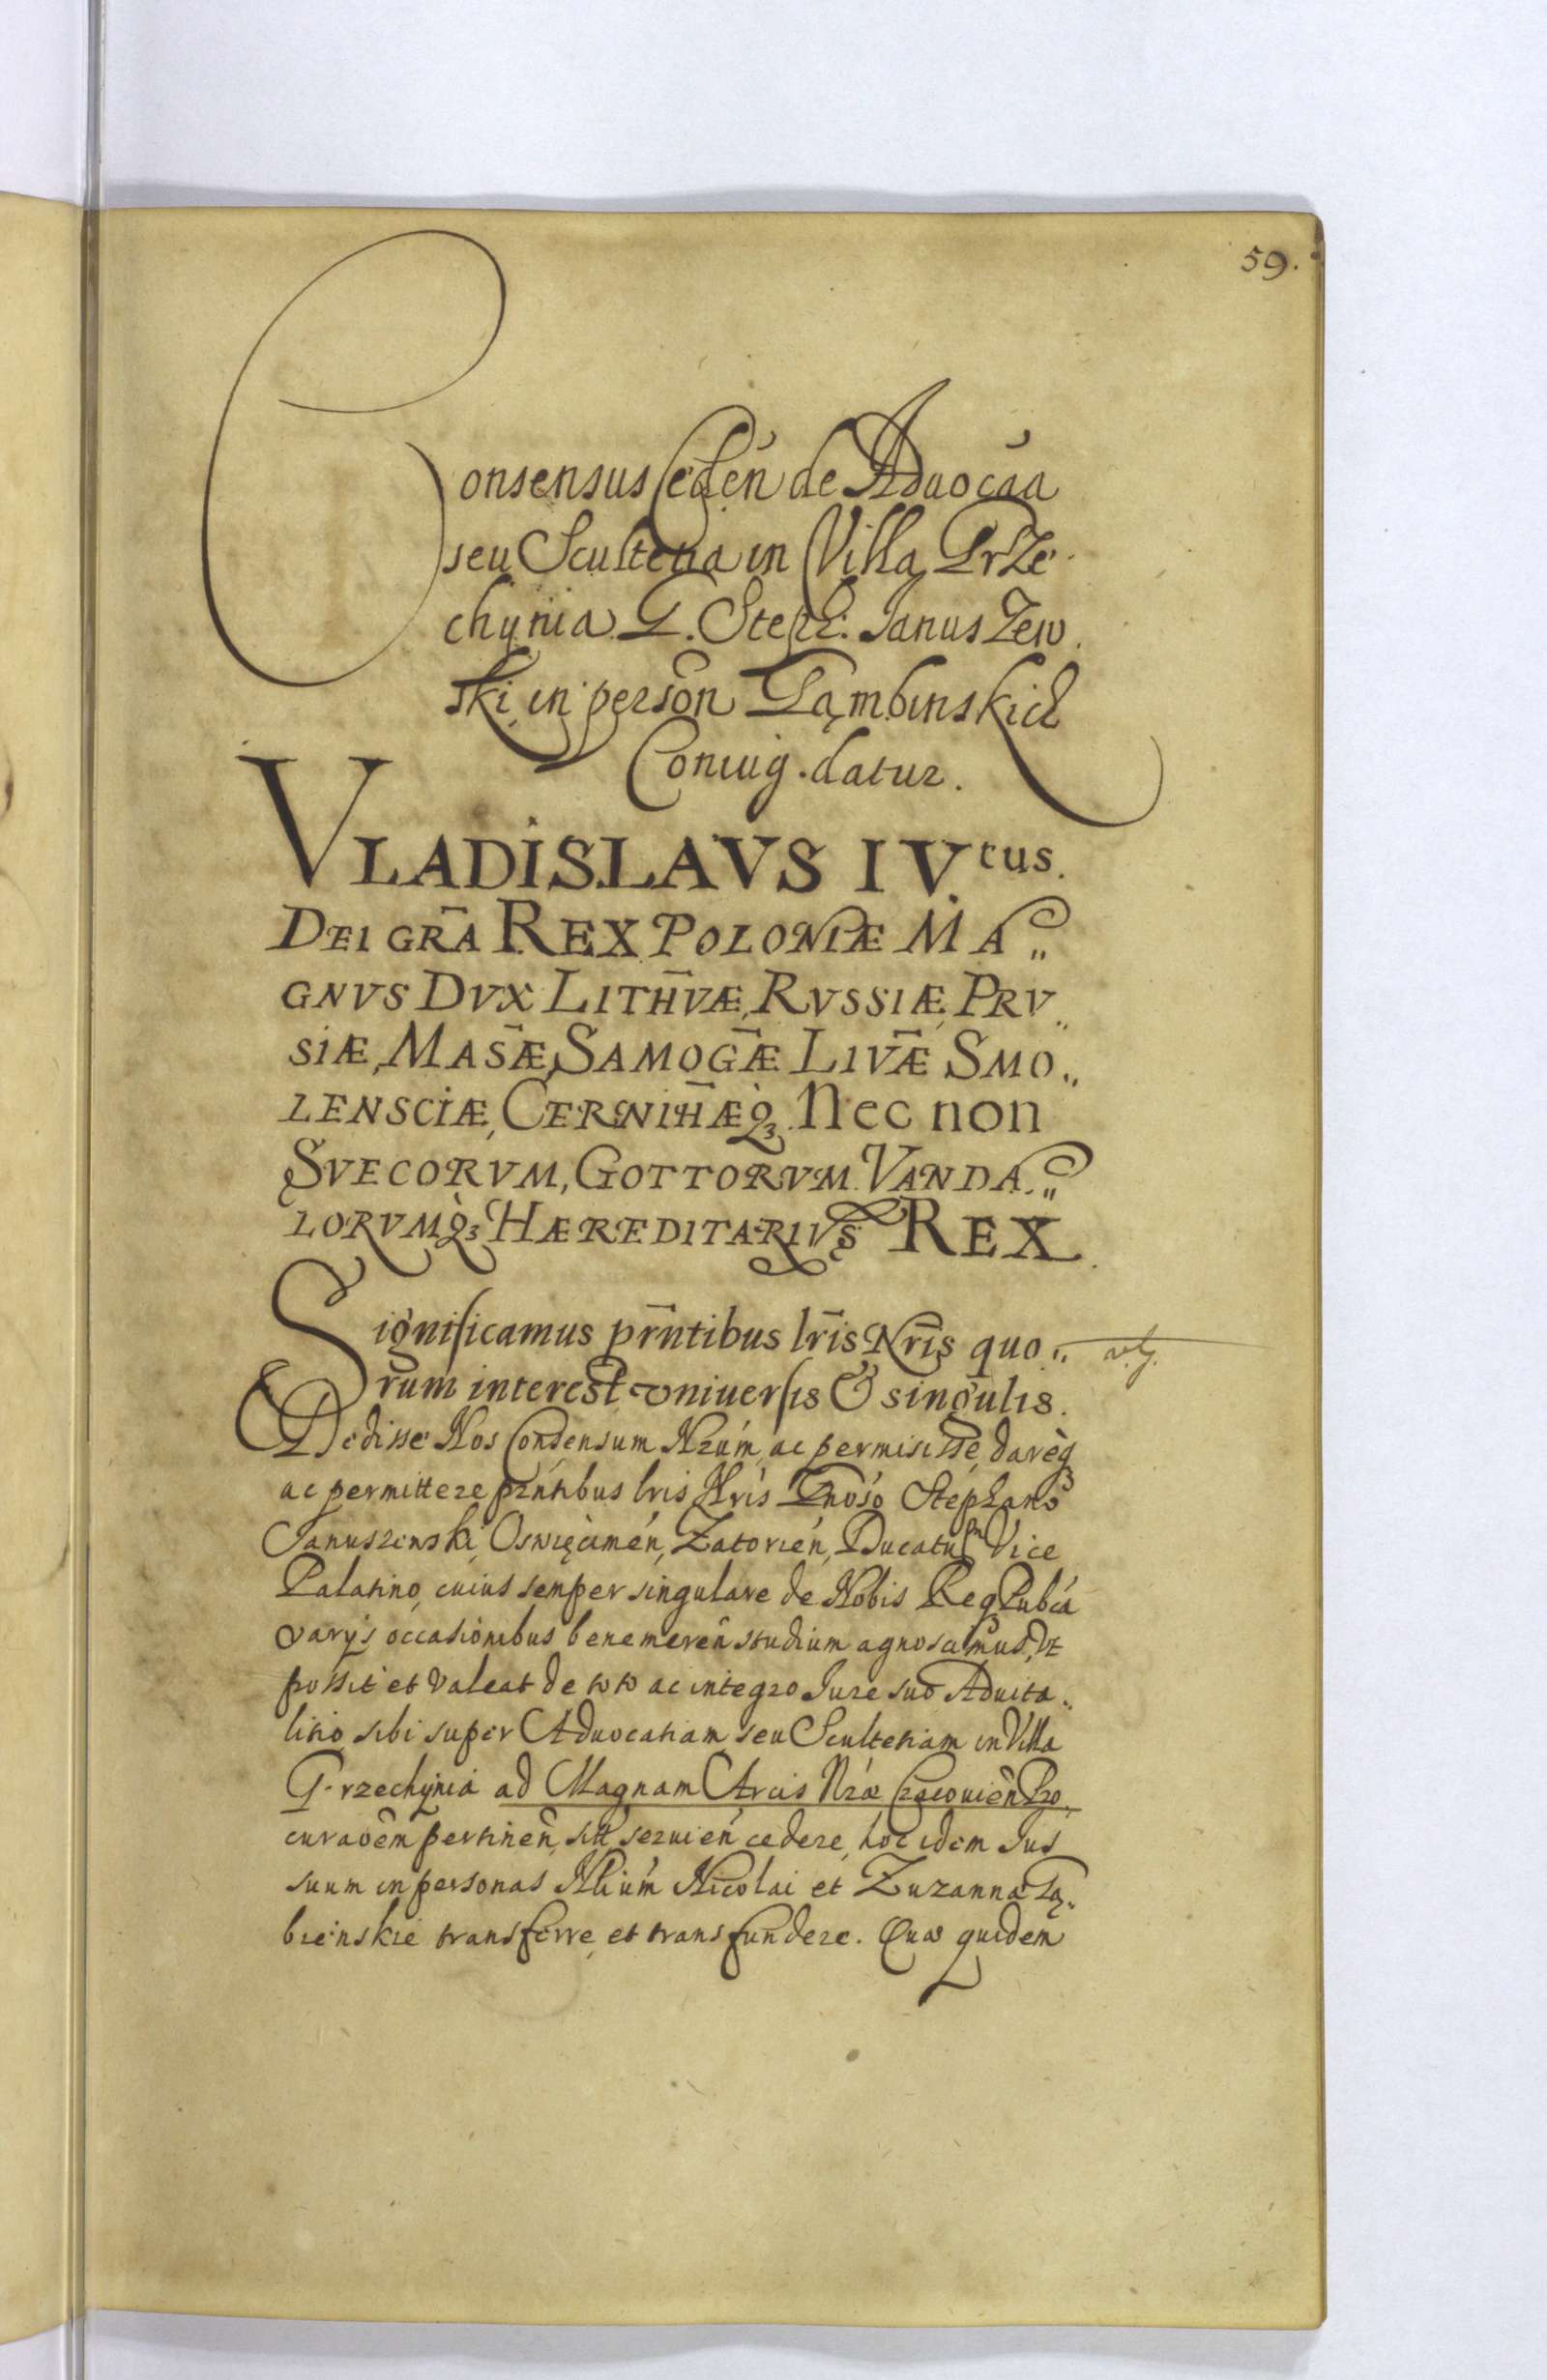 59.
Consensus Cedeń de Aduocãa
seu Scultetia in Villa Prze
chynia G. Steph: Januszew
ski in persõn Gąmbinskich
Coniug. datur.
VLADISLAVS IV.tus.
DEI GRÃA REX POLONIÆ MA„
GNVS DVX LITHVÆ, RVSSIÆ, PRV„
SIÆ, MASÆ, SAMOGÆ LIVÆ SMO„
LENSCIÆ, CERNIHÆQ3 Nec non
SVECORVM, GOTTORVM. VANDA„
LORVMQ3 HÆREDITARIVS REX.
Significamus prñtibus lris Nris quo„
rum interest vniuersis & singulis.
Dedisse Nos Consensum Nrum ac permisisse, dareq3
ac permittere prńtibus lris Nris Gnoso Stephano
Januszewski, Oswięcimeń, Zatorień, Ducatuū Vice
Palatino, cuius semper singulare de Nobis Reqpublca
varijs occasionibus benemereń studium agnoscimus, vt
possit et valeat de toto ac integro Jure suo Aduita„
litio sibi super Aduocatiam seu Scultetiam in Villa
Grzechynia ad Magnam Arcis Nræ Cracouień Pro„
curaõem pertineń, siue seruień cedere, hoc idem Jus
suum in personas Nlium Nicolai et Zuzanna Gą„
bieńskie transferre et transfundere. Quæ quidem